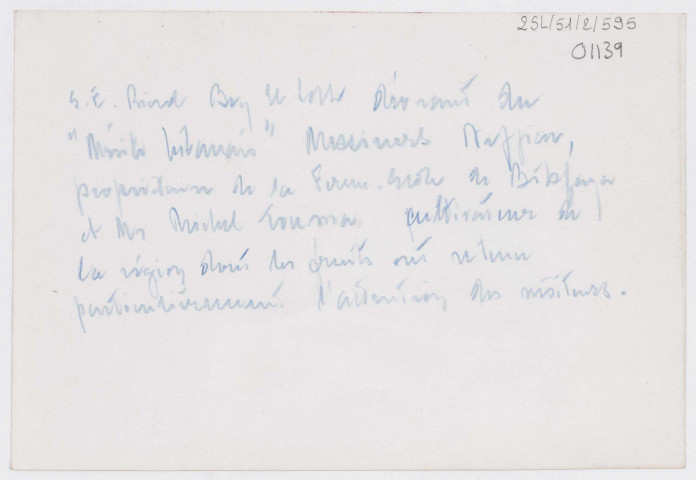 2SL/51/2/595
01139
S.E. Riad Bey El Solh décorant du
"Mérite Libanais" Messieurs Naggiar,
propriétaire de la Ferme-Ecole de Bikfaya
et Mr Michel Touma cultivateur de
la région dont les fruits ont retenu
particulièrement l'attention des visiteurs.